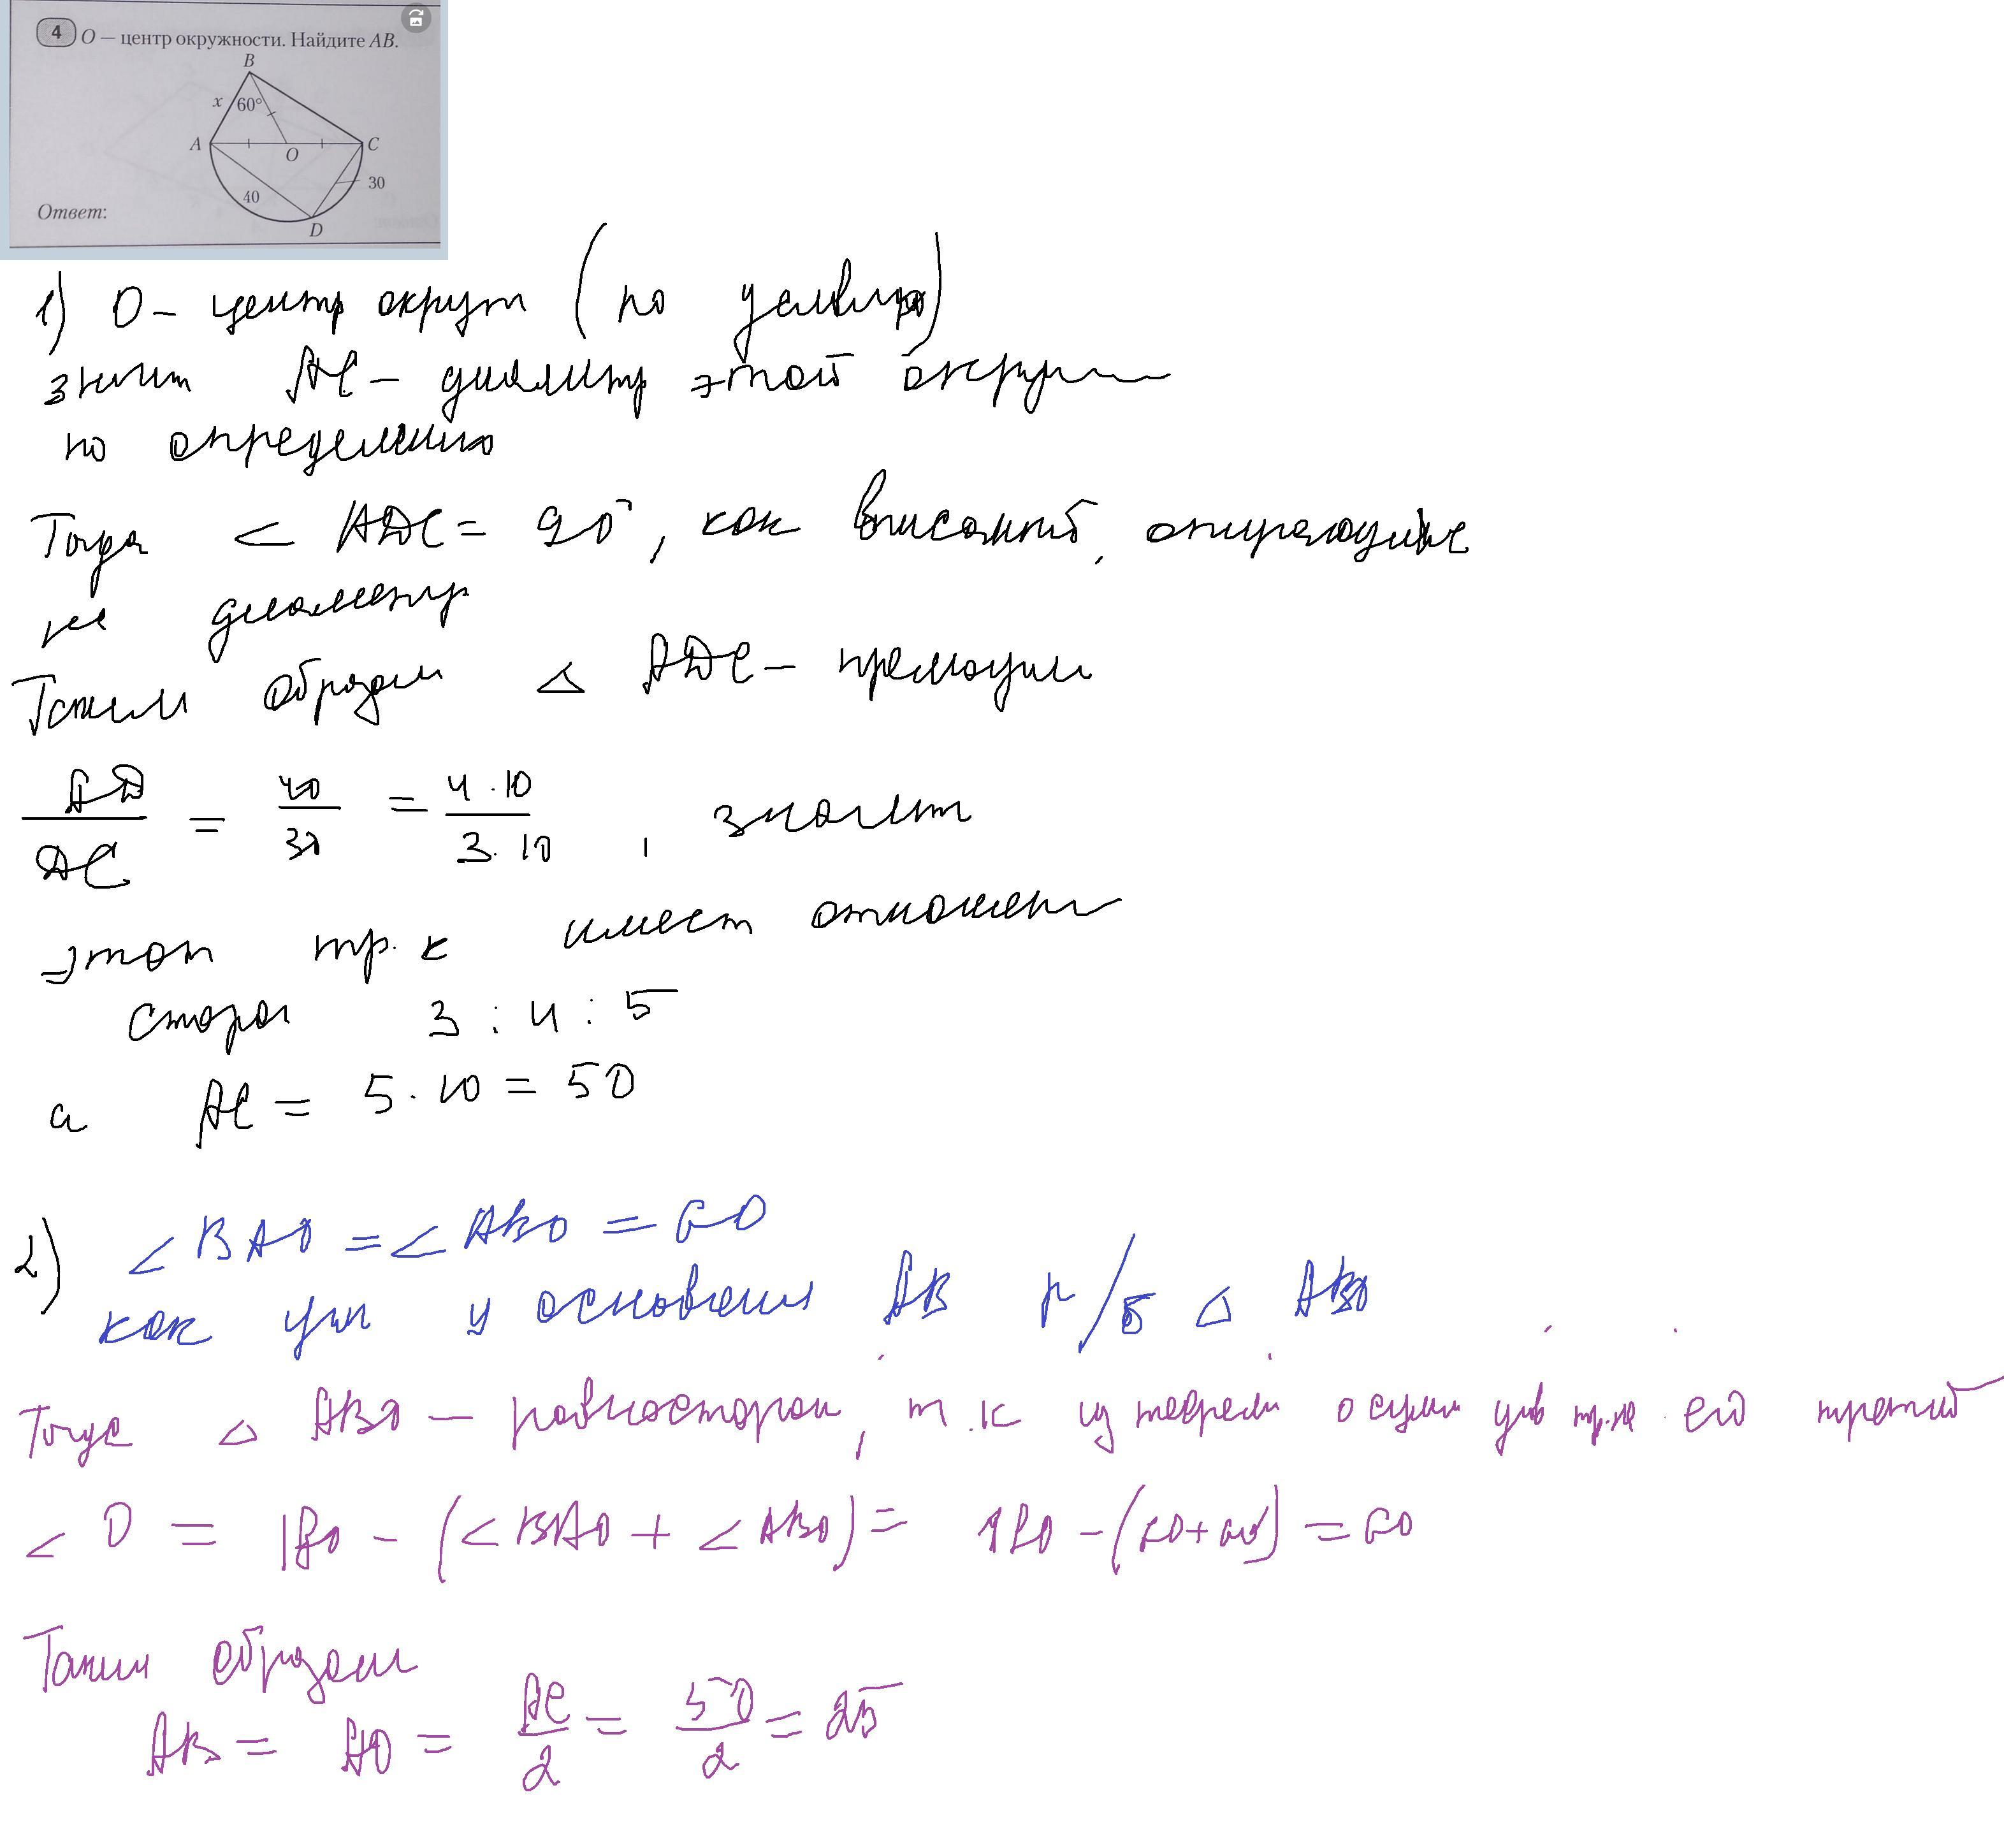 4 O — центр окружности. Найдите AB.
B
x 60°
A O C
30
40
Ответ:
D
1) O – центр окруж (по условию)
значит AC – диаметр этой окружн
по определению
Тогда ∠ ADC = 90°, как вписанный, опирающийся
на диаметр
Таким образом △ ADC – прямоугол
AD/DC = 40/30 = 4·10/3·10, значит
этот тр.к имеет отношен
сторон 3 : 4 : 5
а AC = 5·10 = 50
2) ∠BAO = ∠ABO = 60
как угл у основания AB р/б △ ABO
Тогда △ ABO – равносторон, т.к из теоремы о сумме угл тр-ка его третий
∠ O = 180 – (∠BAO + ∠ABO) = 180 – (60+60) = 60
Таким образом
AB = AO = AC/2 = 50/2 = 25